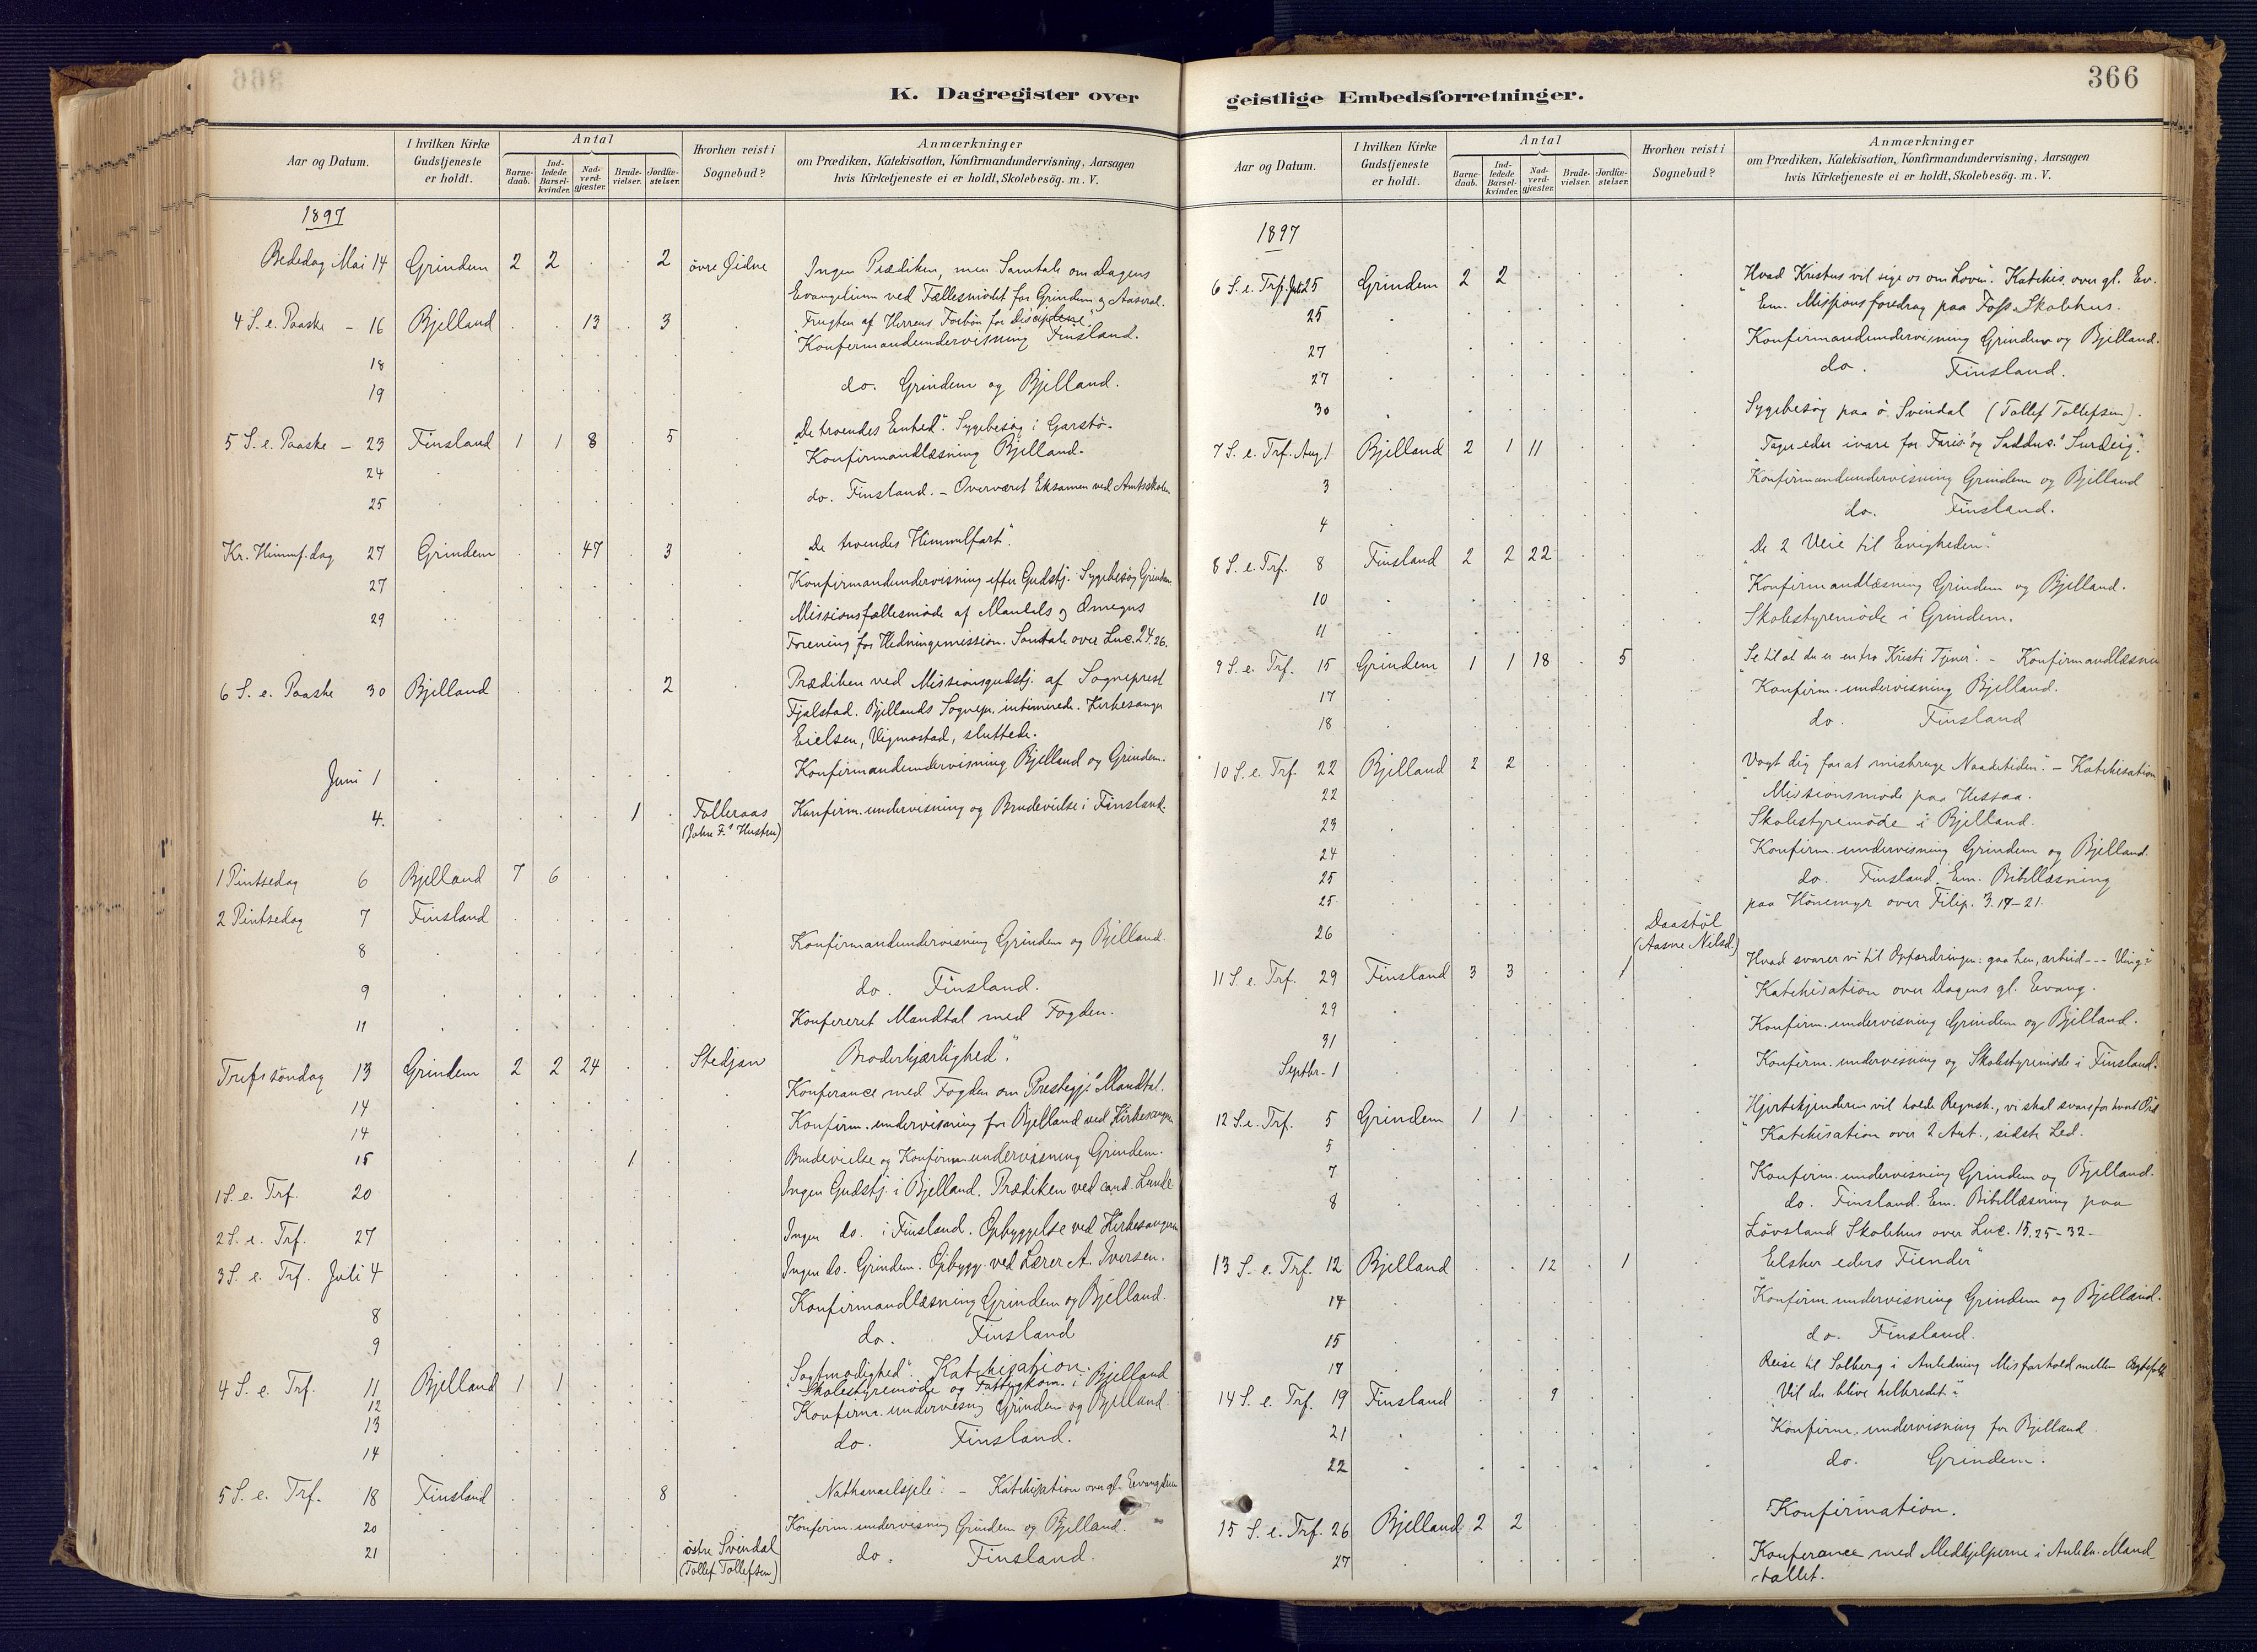 366
K. Dagregister over
geistlige Embedsforretninger.
Aar og Datum.
I hvilken Kirke Gudstjeneste er holdt.
Antal
Barne-daab.
Ind-ledede Barsel-kvinder.
Nad-verd-gjæster.
Brude-vielser.
Jordfæ-stelser.
Hvorhen reist i Sognebud?
Anmærkninger
om Prædiken, Katekisation, Konfirmandundervisning, Aarsagen
hvis Kirketjeneste ei er holdt, Skolebesög. m. V.
1897
Bededag Mai 14 Grindem 2 2 . . 2 övre Øidne Ingen Prædiken, men Samtale om Dagens
Evangelium ved Fællesmödet for Grindem og Aaseral.
4 S. e. Paaske - 16 Bjelland . . 13 . 3 . "Frugten af Herrens Forbön for Disciplene".
18 Konfirmandundervisning Finsland.
19 do. Grindem og Bjelland.
5 S. e. Paaske - 23 Finsland 1 1 8 . 5 "De troendes Enhed". Sygebesög i Garstö.
24 Konfirmandlæsning Bjelland.
25 do. Finsland. - Overværet Eksamen ved Amtsskolen
Kr. Himmf.dag 27 Grindem . . 47 . 3 . "De troendes Himmelfart".
27 Konfirmandundervisning efter Gudstj. Sygebesög Grindem.
29 Missionsfællesmöde af Mandals og Omegns
Forening for Hedningemission. Samtale over Luc. 24.26.
6 S. e. Paaske 30 Bjelland . . . . 2 . Prædiken ved Missionsgudstj. af Sogneprest
Fjalstad. Bjellands Sognepr. intimerede. Kirkesanger
Eielsen, Vigmostad, sluttede.
Juni 1 Konfirmandundervisning Bjelland og Grindem.
4. 1 . Folleraas Konfirm.undervisning og Brudevielse i Finsland.
(John F.s Hustru)
1 Pintsedag 6 Bjelland 7 6
2 Pintsedag 7 Finsland
8 Konfirmandundervisning Grindem og Bjelland.
9 do. Finsland.
11 Konfereret Mandtal med Fogden.
Trefsöndag 13 Grindem 2 2 24 . . Stedjan "Broderkjærlighed".
14 Konferance med Fogden om Prestegjs Mandtal.
14 Konfirm. undervisning for Bjelland ved Kirkesanger
15 1 Brudevielse og Konfirm.undervisning Grindem.
1 S. e. Trf. 20 Ingen Gudstj. i Bjelland. Prædiken ved cand. Lunde
2 S. e. Trf. 27 Ingen do. i Finsland. Opbyggelse ved Kirkesangeren
3 S. e. Trf. Juli 4 Ingen do. Grindem. Opbygg. ved Lærer A. Iversen.
8 Konfirmandlæsning Grindem og Bjelland.
9 do. Finsland
4 S. e. Trf. 11 Bjelland 1 1 "Sagtmodighed". Katekisation.
12 Skolestyremöde og Fattigkom. i Bjelland
13 Konfirm. undervisng Grindem og Bjelland.
14 do. Finsland.
5 S. e. Trf. 18 Finsland . . . . 8 "Nathanaelsjele". - Katekisation over gl. Evangelium
20 Konfirm.undervisning Grindem og Bjelland.
21 östre Svindal do. Finsland.
(Tollef Tollefsen)
Aar og Datum.
I hvilken Kirke Gudstjeneste er holdt.
Antal
Barne-daab.
Ind-ledede Barsel-kvinder.
Nad-verd-gjæster.
Brude-vielser.
Jordfæ-stelser.
Hvorhen reist i Sognebud?
Anmærkninger
om Prædiken, Katekisation, Konfirmandundervisning, Aarsagen
hvis Kirketjeneste ei er holdt, Skolebesög. m. V.
1897
6 S. e. Trf. Juli 25 Grindem 2 2 "Hvad Kristus vil sige os om Loven". Katekis. over gl. Ev.
25 Em. Missionsforedrag paa Foss Skolehus.
27 Konfirmandundervisning Grindem og Bjelland.
27 do. Finsland.
30 Sygebesög paa ö. Svindal (Tollef Tollefsen).
7 S. e. Trf. Aug 1 Bjelland 2 1 11 "Tager eder ivare for Faris. og Saddus. Surdeig".
3 Konfirmandundervisning Grindem og Bjelland
4 do. Finsland.
8 S. e. Trf. 8 Finsland 2 2 22 "De 2 Veie til Evigheden."
10 Konfirmandlæsning Grindem og Bjelland.
11 Skolestyremöde i Grindem.
9 S. e. Trf. 15 Grindem 1 1 18 . 5 "Se til at du er en tro Kristi Tjener". - Konfirmandlæsning
17 Konfirm.undervisning Bjelland.
18 do. Finsland
10 S. e. Trf. 22 Bjelland 2 2 "Vogt dig for at misbruge Naadetiden". - Katekisation
22 Missionsmöde paa Hessaa.
23 Skolestyremöde i Bjelland.
24 Konfirm. undervisning Grindem og Bjelland.
25 do. Finsland. Em. Bibellæsning
25 paa Hönemyr over Filip. 3.17-21.
26 Daastöl
(Aasne Nilsd.)
11 S. e. Trf. 29 Finsland 3 3 . . 1 "Hvad svarer vi til Opfordringen: gaa hen, arbeid --- Ving."
29 Katekisation over Dagens gl. Evang.
31 Konfirm.undervisning Grindem og Bjelland.
Septbr. 1 Konfirm.undervisning og Skolestyremöde i Finsland.
12 S. e. Trf. 5 Grindem 1 1 "Hjertekjenderen vil holde Regnsk., vi skal svare for hvert Ord
5 Katekisation over 2 Art., sidste Led.
7 Konfirm.undervisning Grindem og Bjelland.
8 do. Finsland. Em. Bibellæsning paa
Lövsland Skolehus over Luc. 15,25-32.
13 S. e. Trf. 12 Bjelland . . 12 . 1 "Elsker eders Fiender"
14 Konfirm.undervisning Grindem og Bjelland.
15 do. Finsland.
17 Reise til Solberg i Anledning Misforhold mellem Ægtefolk
14 S. e. Trf. 19 Finsland . . 9 "Vil du blive helbredet".
21 Konfirm. undervisning for Bjelland
22 do. Grindem.
15 S. e. Trf. 26 Bjelland 2 2 Konfirmation.
27 Konferance med Medhjelperne i Anledn. Mand-
tallet.